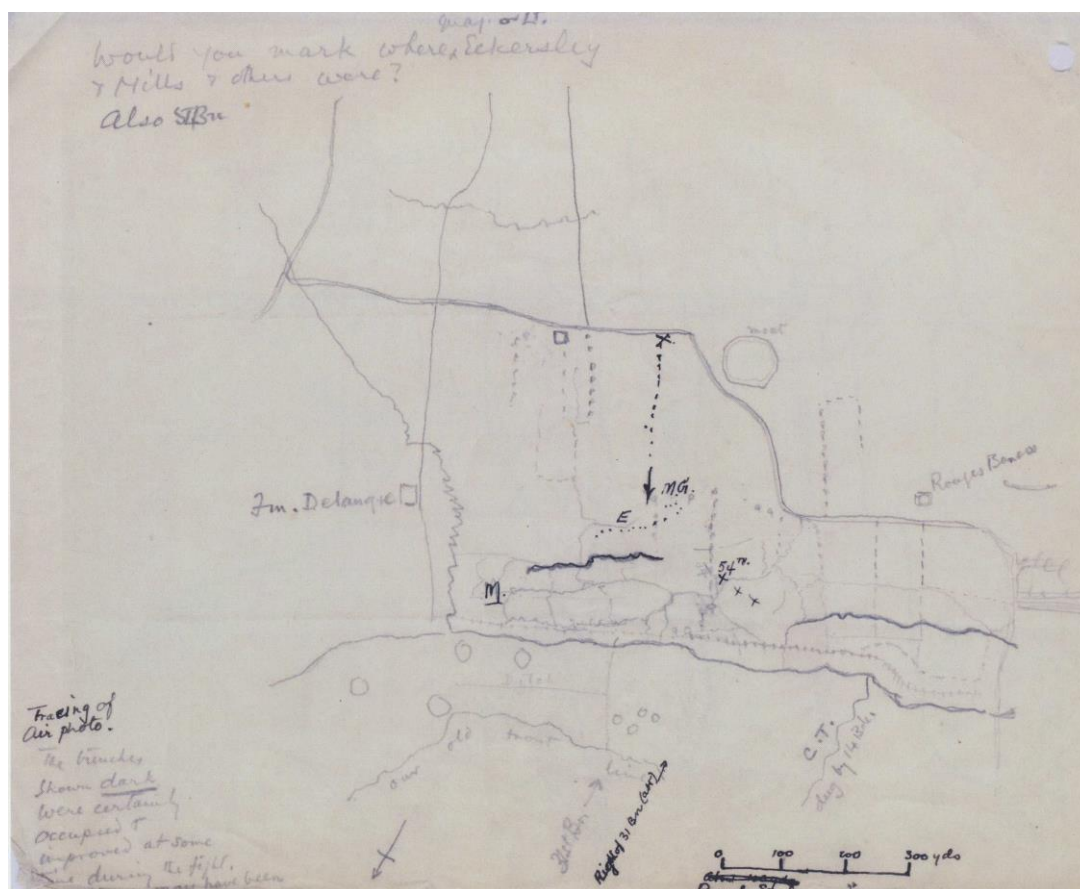 Would you mark where Eckersley
& Mills & others were?
Also
moat
Fm. Delangre
Rouges Bancs
M.G.
E
54th.
M.
Ditch
our old front line
C.T.
dug by 14 Bde.
31st Bn
Right of 31 Bn (att)
Tracing of
Air photo.
The trenches
shown dark
were certainly
occupied &
improved at some
time during the fight.
have been
0 100 200 300 yds